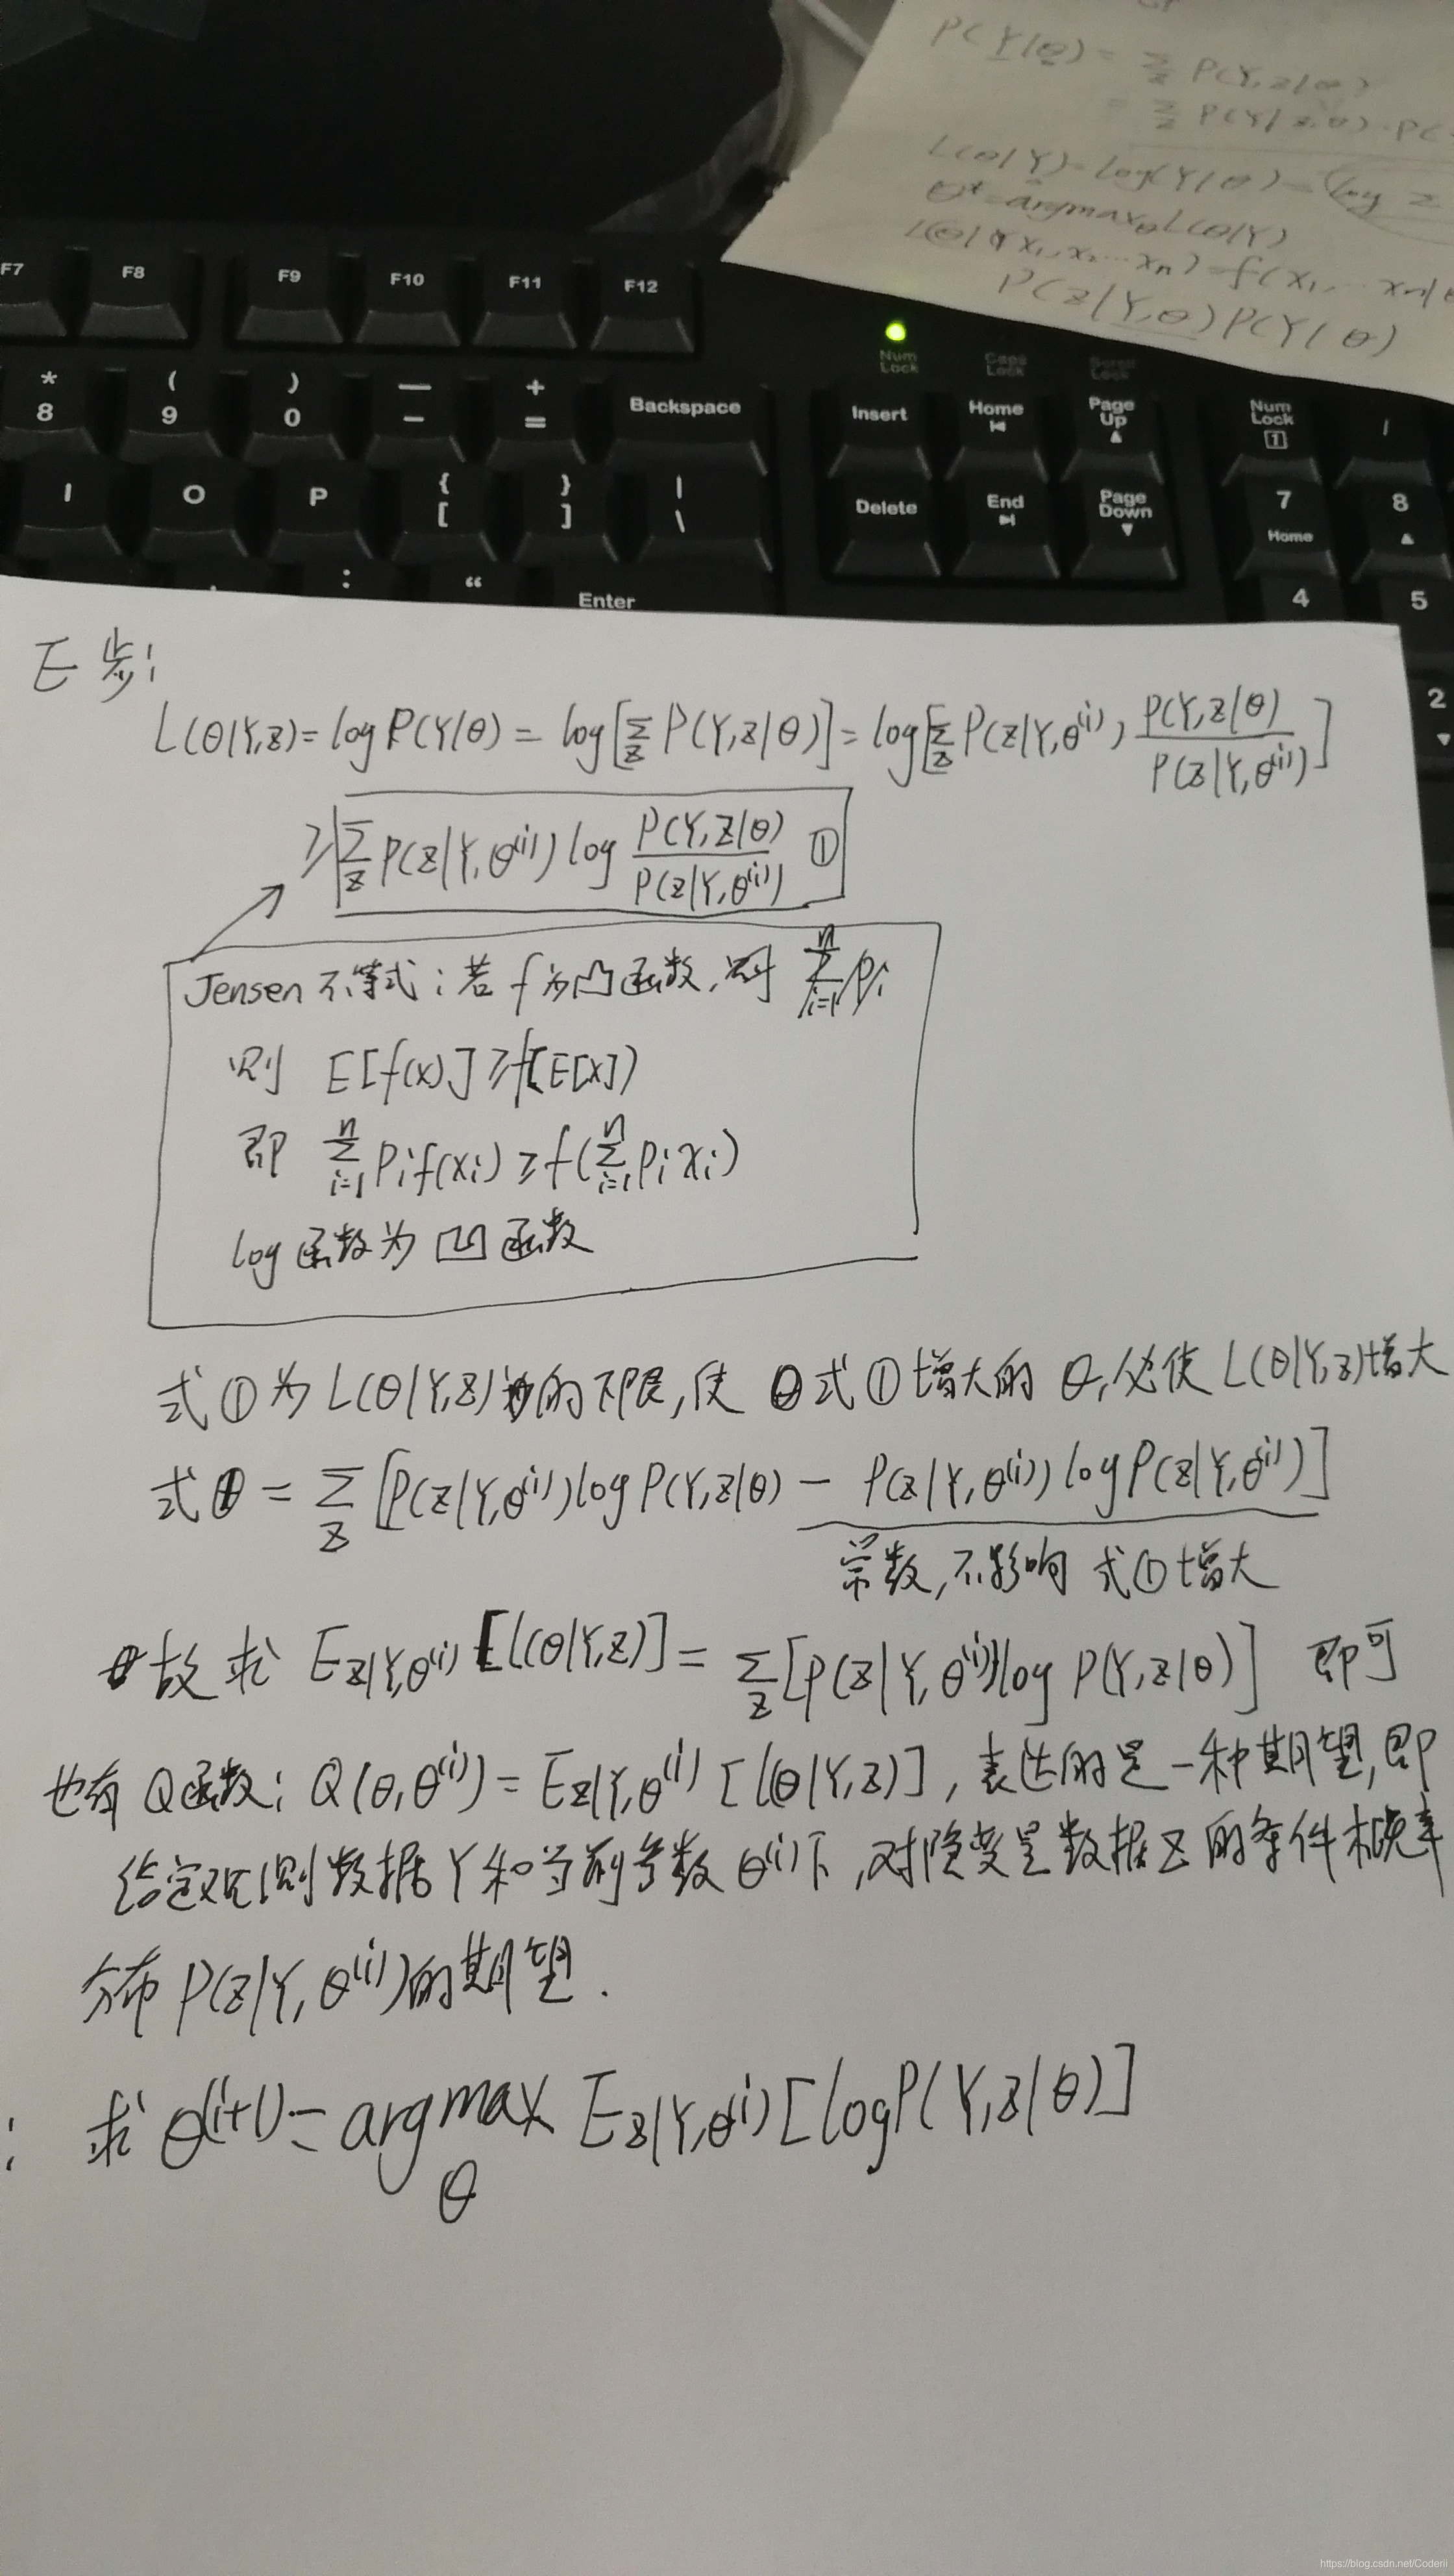 P(Y|θ) = Σ_z P(Y,z|θ)
= Σ_z P(Y|z,θ)·P(
L(θ|Y)=log(Y|θ)=(log Σ
θ*=argmax_θ L(θ|Y)
L(θ|x₁,x₂…xₙ)=f(x₁,…xₙ|θ
P(z|Y,θ)P(Y|θ)
F7 F8 F9 F10 F11 F12
Num Lock Caps Lock Scroll Lock
* 8 ( 9 ) 0 — - + = Backspace Insert Home Page Up Num Lock 1 /
I O P { [ } ] | \ Delete End Page Down 7 Home 8
: “ Enter 4 5
2
E步:
L(θ|Y,z)=logP(Y|θ)=log[Σ_z P(Y,z|θ)]=log[Σ_z P(z|Y,θ⁽ⁱ⁾) P(Y,z|θ)/P(z|Y,θ⁽ⁱ⁾)]
≥ Σ_z P(z|Y,θ⁽ⁱ⁾) log P(Y,z|θ)/P(z|Y,θ⁽ⁱ⁾) ①
Jensen不等式:若f为凸函数,则 Σ_{i=1}^n pᵢ
则 E[f(x)]≥f(E[x])
即 Σ_{i=1}^n pᵢf(xᵢ)≥f(Σ_{i=1}^n pᵢxᵢ)
log函数为凹函数
式①为L(θ|Y,z)的下限,使式①增大的θ,必使L(θ|Y,z)增大
式①=Σ_z[P(z|Y,θ⁽ⁱ⁾)logP(Y,z|θ) − P(z|Y,θ⁽ⁱ⁾)logP(z|Y,θ⁽ⁱ⁾)]
常数,不影响 式①增大
故求 E_{z|Y,θ⁽ⁱ⁾}[L(θ|Y,z)]=Σ_z[P(z|Y,θ⁽ⁱ⁾)log P(Y,z|θ)] 即可
也有Q函数:Q(θ,θ⁽ⁱ⁾)=E_{z|Y,θ⁽ⁱ⁾}[L(θ|Y,z)],表达的是一种期望,即
给定观测数据Y和当前参数θ⁽ⁱ⁾下,对隐变量数据Z的条件概率
分布P(z|Y,θ⁽ⁱ⁾)的期望.
: 求θ⁽ⁱ⁺¹⁾=argmax_θ E_{z|Y,θ⁽ⁱ⁾}[logP(Y,z|θ)]
https://blog.csdn.net/Coderii